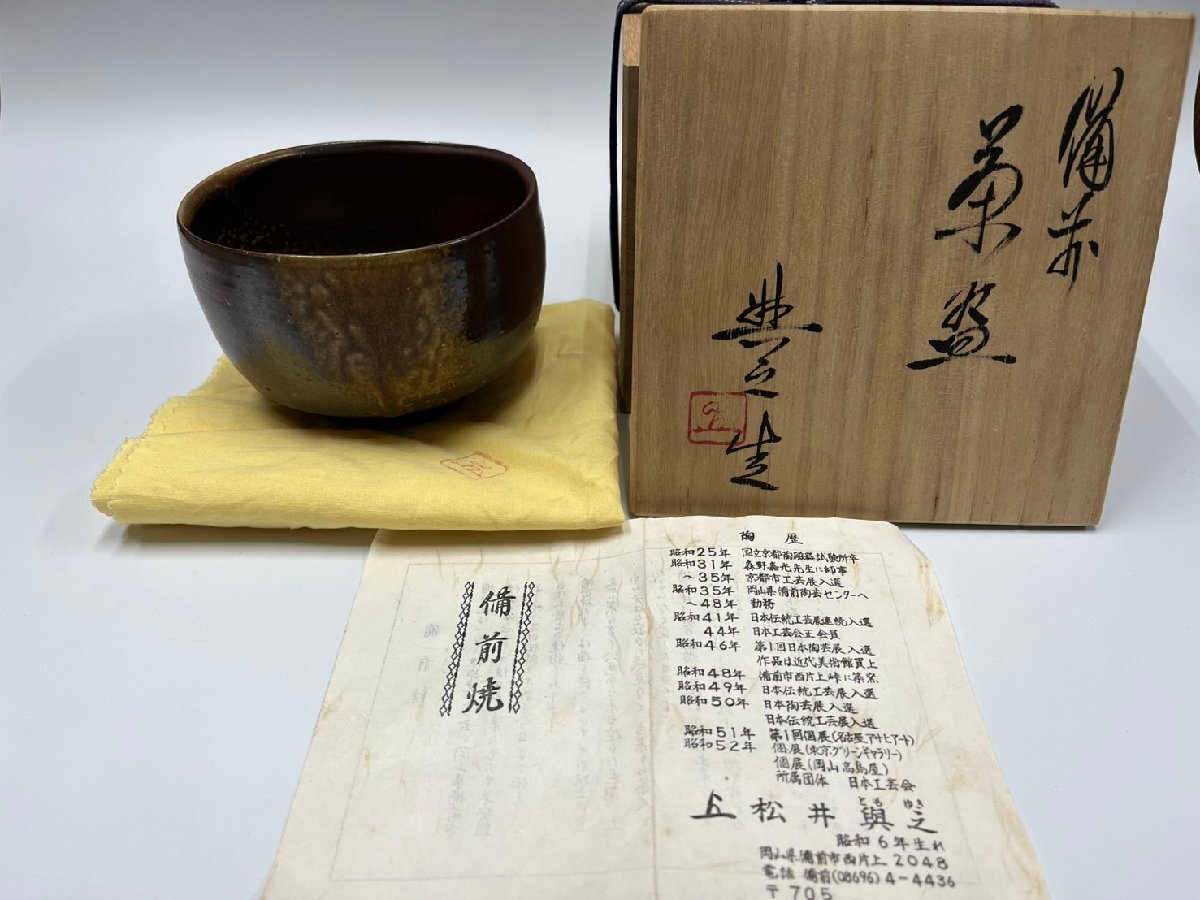 備前
茶盌
與之造
備前焼
陶歴
昭和25年 国立京都陶磁器試験所卒
昭和31年 森野嘉光先生に師事
～35年 京都市工芸展入選
昭和35年 岡山県備前陶芸センターへ
～48年 勤務
昭和41年 日本伝統工芸展連続入選
44年 日本工芸会正会員
昭和46年 第1回日本陶芸展入選
作品は近代美術館買上
昭和48年 備前市西片上峠に築窯
昭和49年 日本伝統工芸展入選
昭和50年 日本陶芸展入選
日本伝統工芸展入選
昭和51年 第1回個展(名古屋アサヒアート)
昭和52年 個展(東京グリーンギャラリー)
個展(岡山高島屋)
所属団体 日本工芸会
松井與之
とも ゆき
昭和6年生れ
岡山県備前市西片上2048
電話 備前(08696)4-4436
〒705